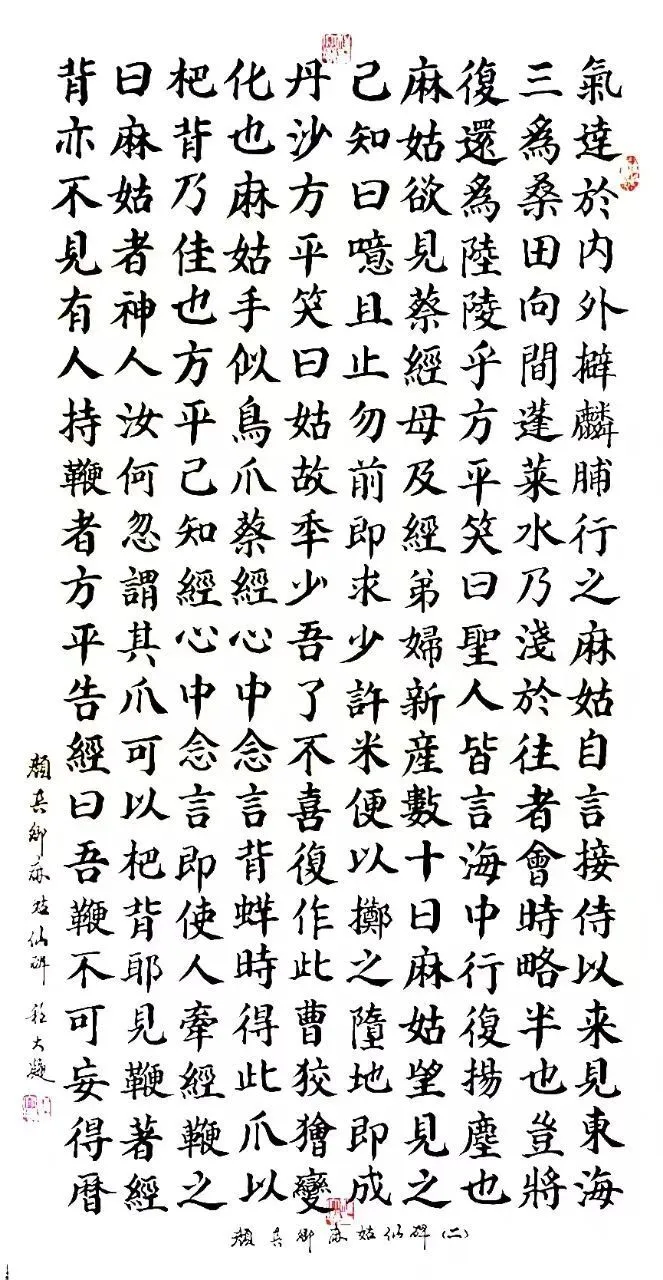 氣達於内外擗麟脯行之麻姑自言接侍以来見東海
三爲桑田向間蓬莱水乃淺於往者會時略半也豈將
復還爲陸陵乎方平笑曰聖人皆言海中行復揚塵也
麻姑欲見蔡經母及經弟婦新産數十日麻姑望見之
己知曰噫且止勿前即求少許米便以擲之墮地即成
丹沙方平笑曰姑故年少吾了不喜復作此曹狡獪變
化也麻姑手似鳥爪蔡經心中念言背蛘時得此爪以
杷背乃佳也方平己知經心中念言即使人牽經鞭之
曰麻姑者神人汝何忽謂其爪可以杷背耶見鞭著經
背亦不見有人持鞭者方平告經曰吾鞭不可妄得曆
顏真卿麻姑仙碑
顏真卿麻姑仙碑(二)